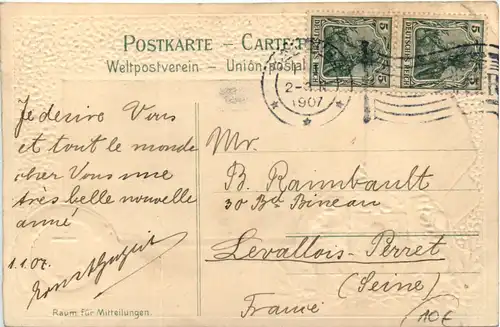 POSTKARTE – CARTE P
Weltpostverein – Union postal
DEUTSCHES REICH
5 5 5 5
2-3 N
1907
Je desire Vous
et tout le monde
chez Vous une
très belle nouvelle
anné
1.1.07.
Mr.
B. Raimbault
30 Bd Bineau
Levallois-Perret
(Seine)
France
Raum für Mitteilungen.
10€